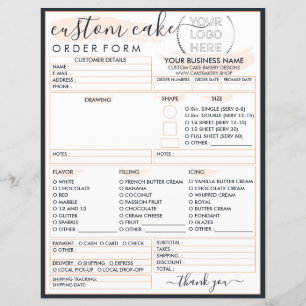 custom cake
ORDER FORM
YOUR
LOGO
HERE
CUSTOMER DETAILS
YOUR BUSINESS NAME
NAME :
CUSTOM CAKE BAKERY DESIGNS
E-MAIL
WWW.CAKEBAKERY.SHOP
ADDRESS :
ORDER DATE :
ORDER # :
PHONE :
DRAWING
SHAPE
SIZE
SINGLE (SERV 6-8)
DOUBLE (SERV 12-15)
1/4 SHEET (SERV 12-20)
1/2 SHEET (SERV 30)
FULL SHEET (SERV 60)
OTHER:
NOTES :
NOTES :
FLAVOR
FILLING
ICING
WHITE
CHOCOLATE
RED
MARBLE
1/2 AND 1/2
GLITTER
CARAMEL
OTHER:
FRENCH BUTTER CREAM
BANANA
COCONUT
PASSION FRUIT
CHOCOLATE
CREAM CHEESE
FRUIT
OTHER:
VANILLA BUTTER CREAM
CHOCOLATE
BUTTER CREAM
ROYAL
FONDANT
GLAZES
OTHER:
PAYMENT CASH CARD CHECK
OTHER:
DELIVERY SHIPPING EXPRESS
LOCAL PICK-UP LOCAL DROP-OFF
SHIPPING TRACKING:
SHIPPING DATE:
SUBTOTAL :
TAXES :
SHIPPING :
DISCOUNT :
TOTAL :
thank you